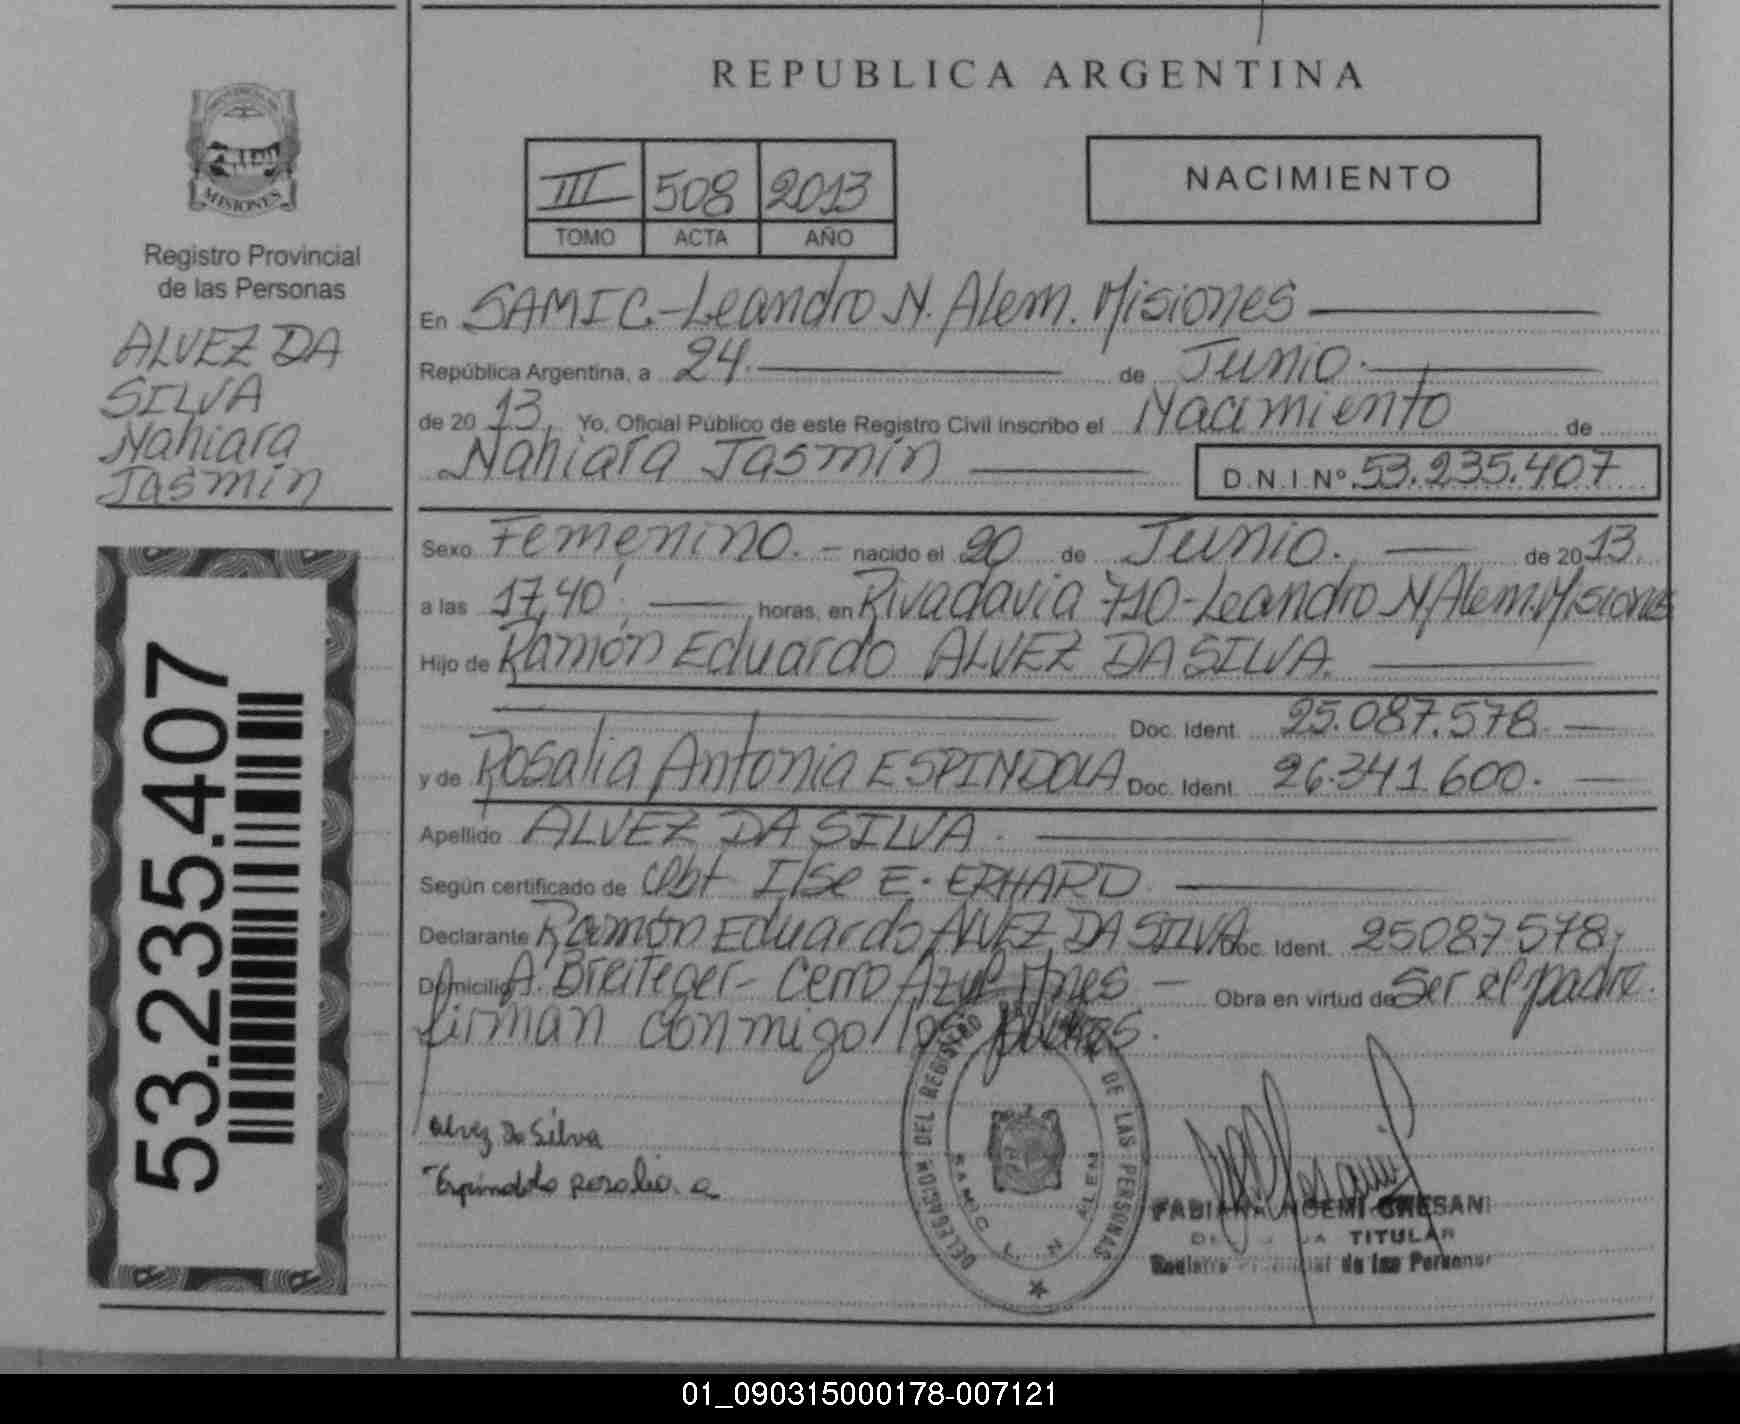 REPUBLICA ARGENTINA
III 508 2013
TOMO ACTA AÑO
NACIMIENTO
MISIONES
Registro Provincial
de las Personas
ALVEZ DA
SILVA
Nahiara
Jasmín
53.235.407
En SAMIC-Leandro N. Alem. Misiones
República Argentina, a 24. de Junio.
de 20 13. Yo, Oficial Público de este Registro Civil inscribo el Nacimiento de
Nahiara Jasmín D.N.I.Nº 53.235.407
Sexo Femenino. nacido el 20 de Junio. de 20 13.
a las 17,40'. horas, en Rivadavia 710-Leandro N Alem. Misiones
Hijo de Ramón Eduardo ALVEZ DA SILVA.
Doc. Ident. 25.087.578.
y de Rosalia Antonia ESPINDOLA Doc. Ident. 26.341.600.
Apellido ALVEZ DA SILVA.
Según certificado de Obst Ilse E. ERHARD.
Declarante Ramón Eduardo ALVEZ DA SILVA Doc. Ident. 25087578.
Domicilio A. Breiteger- Cerro Azul Mnes Obra en virtud de Ser el padre.
firman conmigo los padres.
Alvez Da Silva
Espindola Rosalia. a
DELEGACION DEL REGISTRO DE LAS PERSONAS
SAMIC L N ALEM
FABIANA NOEMI
TITULAR
de las Personas
01_090315000178-007121